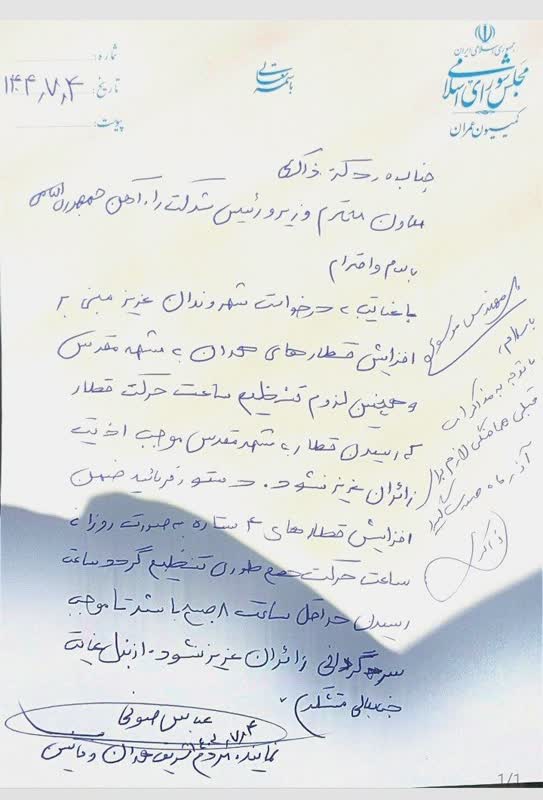 جمهوری اسلامی ایران
مجلس شورای اسلامی
کمیسیون عمران
باسمه تعالی
شماره:
تاریخ: ۱۴۰۴,۷,۴
پیوست:
جناب دکتر ذاکری
معاون محترم وزیر و رئیس شرکت راه آهن جمهوری اسلامی
با سلام و احترام
با عنایت به درخواست شهروندان عزیز مبنی بر
افزایش قطارهای همدان به مشهد مقدس
و همچنین لزوم تنظیم ساعت حرکت قطار
که رسیدن قطار به شهر مقدس موجب اذیت
زائران عزیز نشود. دستور فرمائید ضمن
افزایش قطارهای ۴ ستاره به صورت روزانه
ساعت حرکت طوری تنظیم گردد ساعت
رسیدن حداقل ساعت ۸ صبح باشد تا موجب
سرگردانی زائران عزیز نشود. از بذل عنایت
جنابعالی متشکرم
عباس صوفی
۱۴۰۴,۷,۴
نماینده مردم شریف همدان و فامنین
مهندس موسوی
با سلام
با توجه به مذاکرات
قبلی هماهنگی لازم برای
آذر ماه صورت گیرد
ذاکری
1/1